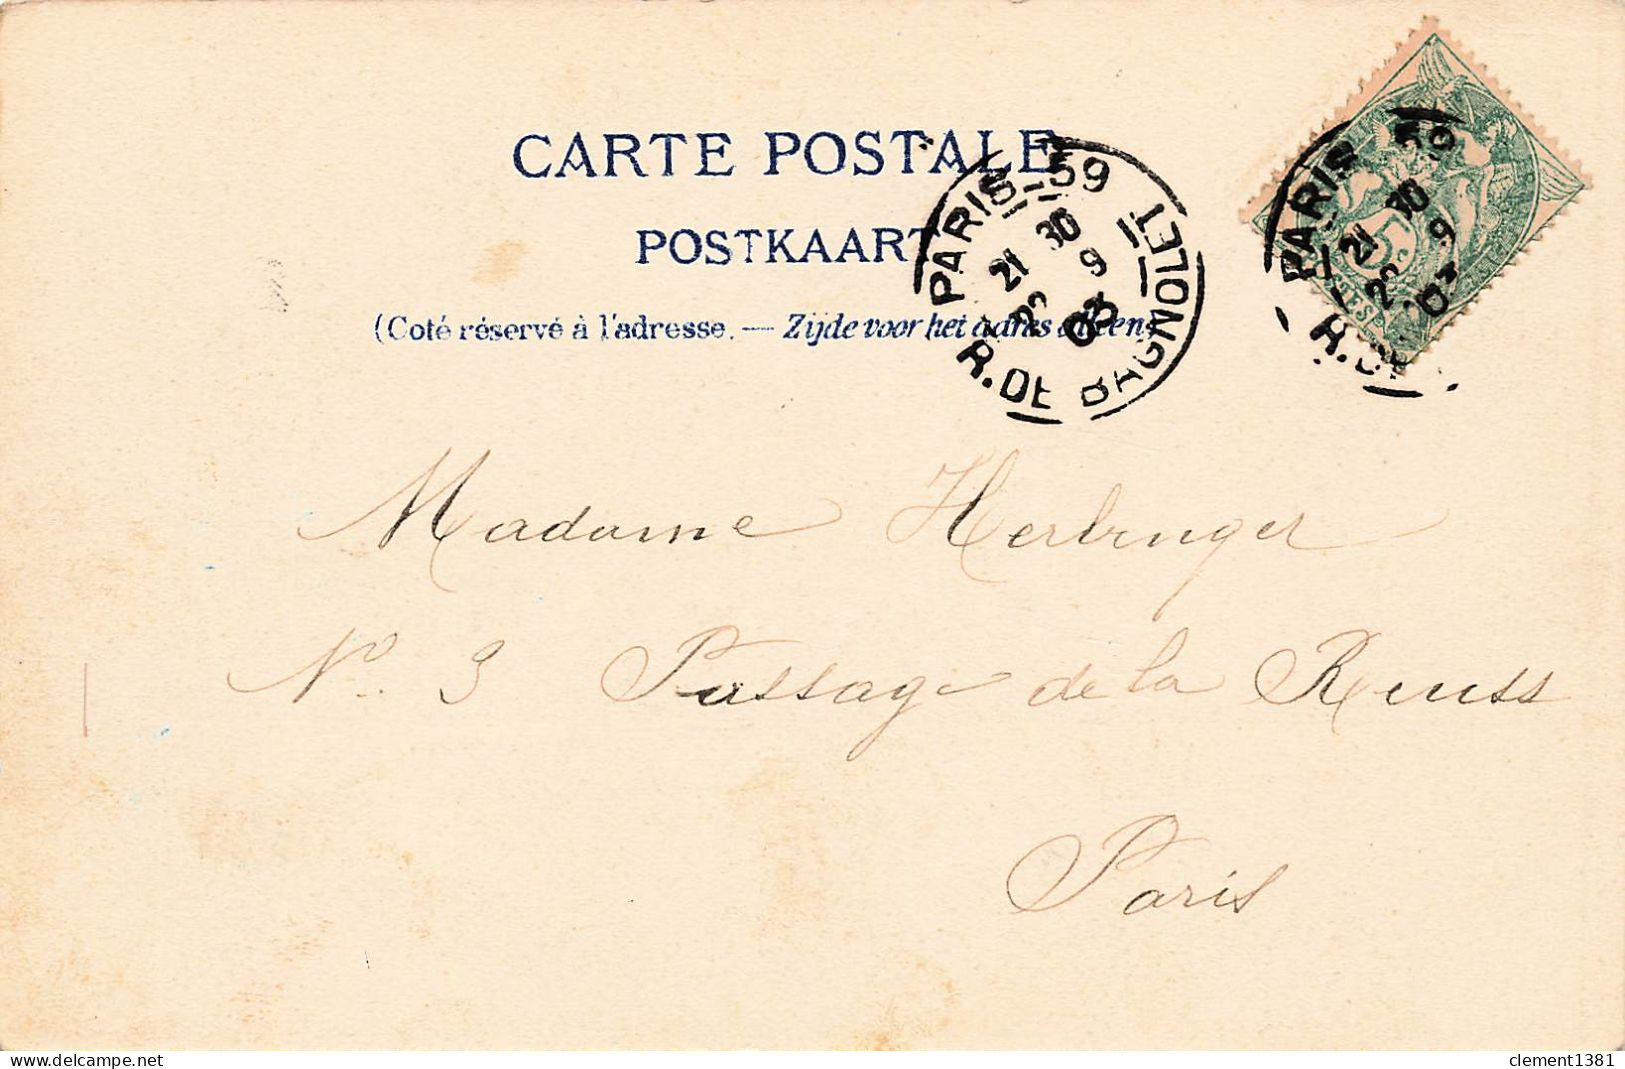 CARTE POSTALE
POSTKAART
(Coté réservé à l'adresse. — Zijde voor het adres alleen)
PARIS - 59
21 30
22 9
03
R. DE BAGNOLET
PARIS
21 30
22 9
03
R. DE
5
Madame Herbinger
No. 3 Passage de la Reuss
Paris
clement1381